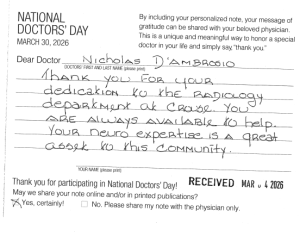 NATIONAL
DOCTORS' DAY
MARCH 30, 2026
By including your personalized note, your message of
gratitude can be shared with your beloved physician.
This is a unique and meaningful way to honor a special
doctor in your life and simply say "thank you"
Dear Doctor Nicholas D'Ambrosio
DOCTORS' FIRST AND LAST NAME (please print)
Thank you for your
dedication to the radiology
department at Crouse. You
are always available to help.
Your neuro expertise is a great
asset to this community.
YOUR NAME (please print)
Thank you for participating in National Doctors' Day!
RECEIVED MAR 04 2026
May we share your note online and/or in printed publications?
X Yes, certainly! No. Please share my note with the physician only.